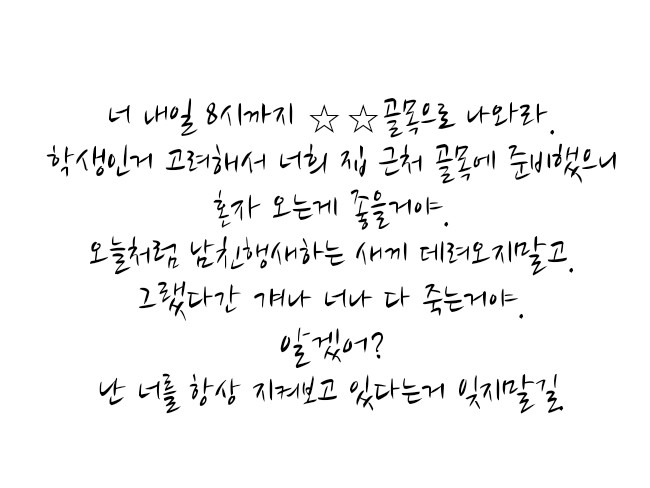 너 내일 8시까지 ☆ ☆골목으로 나와라.
학생인거 고려해서 너희 집 근처 골목에 준비했으니
혼자 오는게 좋을거야.
오늘처럼 남친행새하는 새끼 데려오지말고.
그랬다간 걔나 너나 다 죽는거야.
알겠어?
난 너를 항상 지켜보고 있다는거 잊지말길.